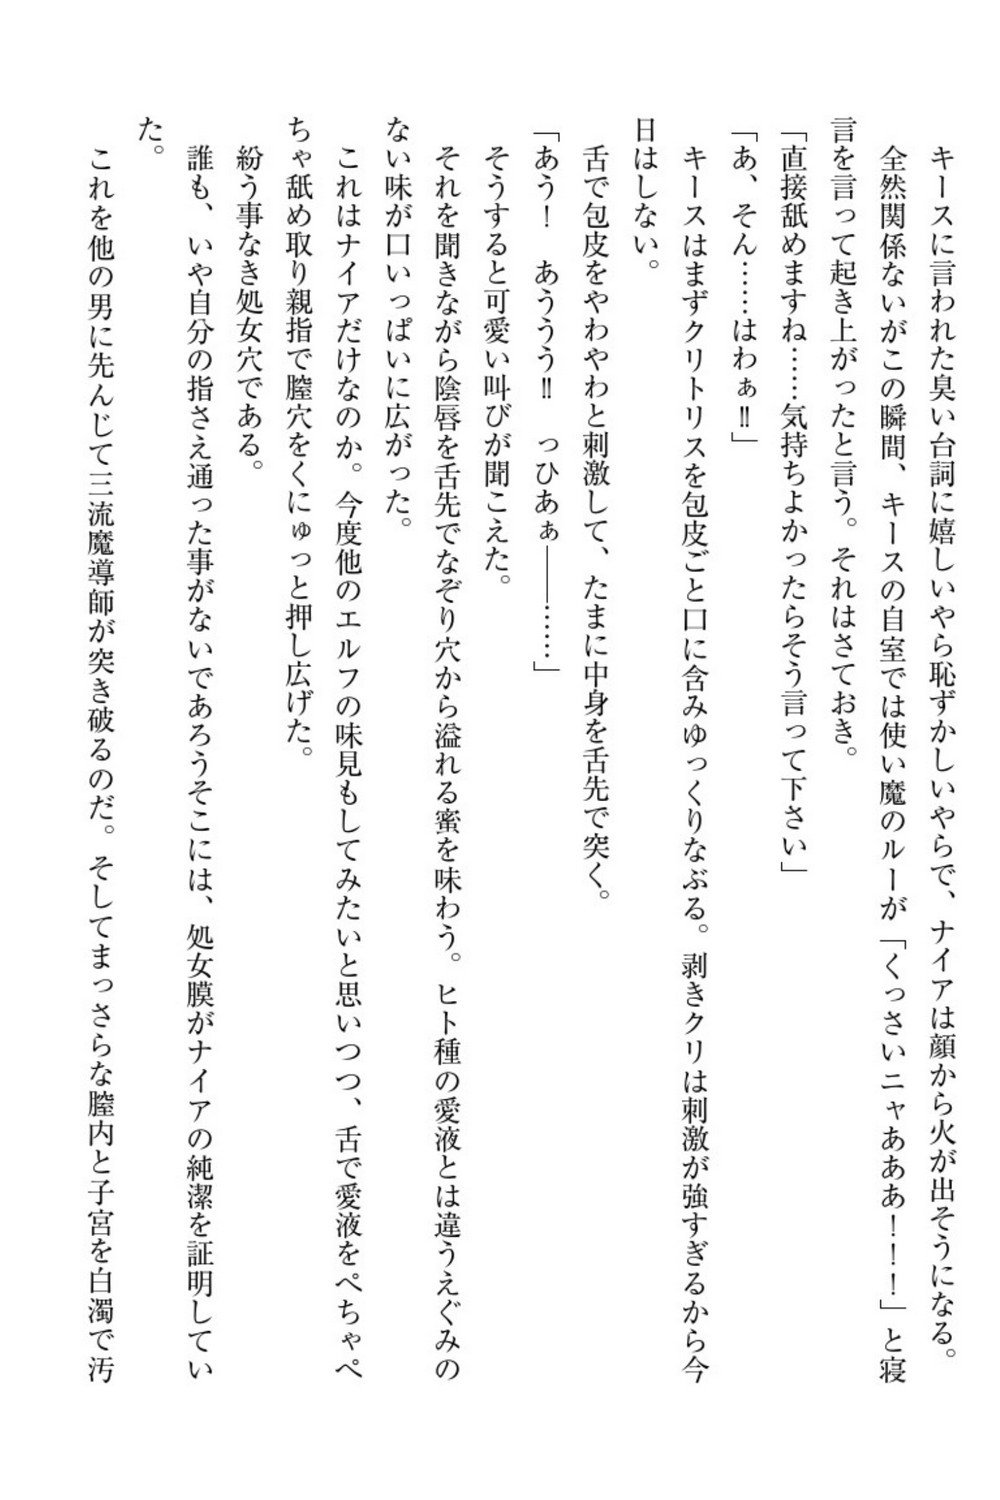 キースに言われた臭い台詞に嬉しいやら恥ずかしいやらで、ナイアは顔から火が出そうになる。
全然関係ないがこの瞬間、キースの自室では使い魔のルーが「くっさいニャあああ！！！」と寝
言を言って起き上がったと言う。それはさておき。
「直接舐めますね……気持ちよかったらそう言って下さい」
「あ、そん……はわぁ‼」
キースはまずクリトリスを包皮ごと口に含みゆっくりなぶる。剥きクリは刺激が強すぎるから今
日はしない。
舌で包皮をやわやわと刺激して、たまに中身を舌先で突く。
「あう！　あううう‼　っひあぁ――……」
そうすると可愛い叫びが聞こえた。
それを聞きながら陰唇を舌先でなぞり穴から溢れる蜜を味わう。ヒト種の愛液とは違うえぐみの
ない味が口いっぱいに広がった。
これはナイアだけなのか。今度他のエルフの味見もしてみたいと思いつつ、舌で愛液をぺちゃぺ
ちゃ舐め取り親指で膣穴をくにゅっと押し広げた。
紛う事なき処女穴である。
誰も、いや自分の指さえ通った事がないであろうそこには、処女膜がナイアの純潔を証明してい
た。
これを他の男に先んじて三流魔導師が突き破るのだ。そしてまっさらな膣内と子宮を白濁で汚